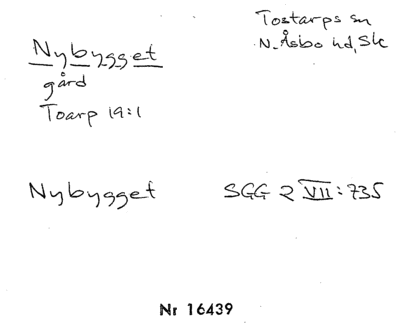 Nybygget
gård
Toarp 19:1
Tostarps sn
N. Åsbo hd, Sk
Nybygget SGG 2 VII:735
Nr 16439